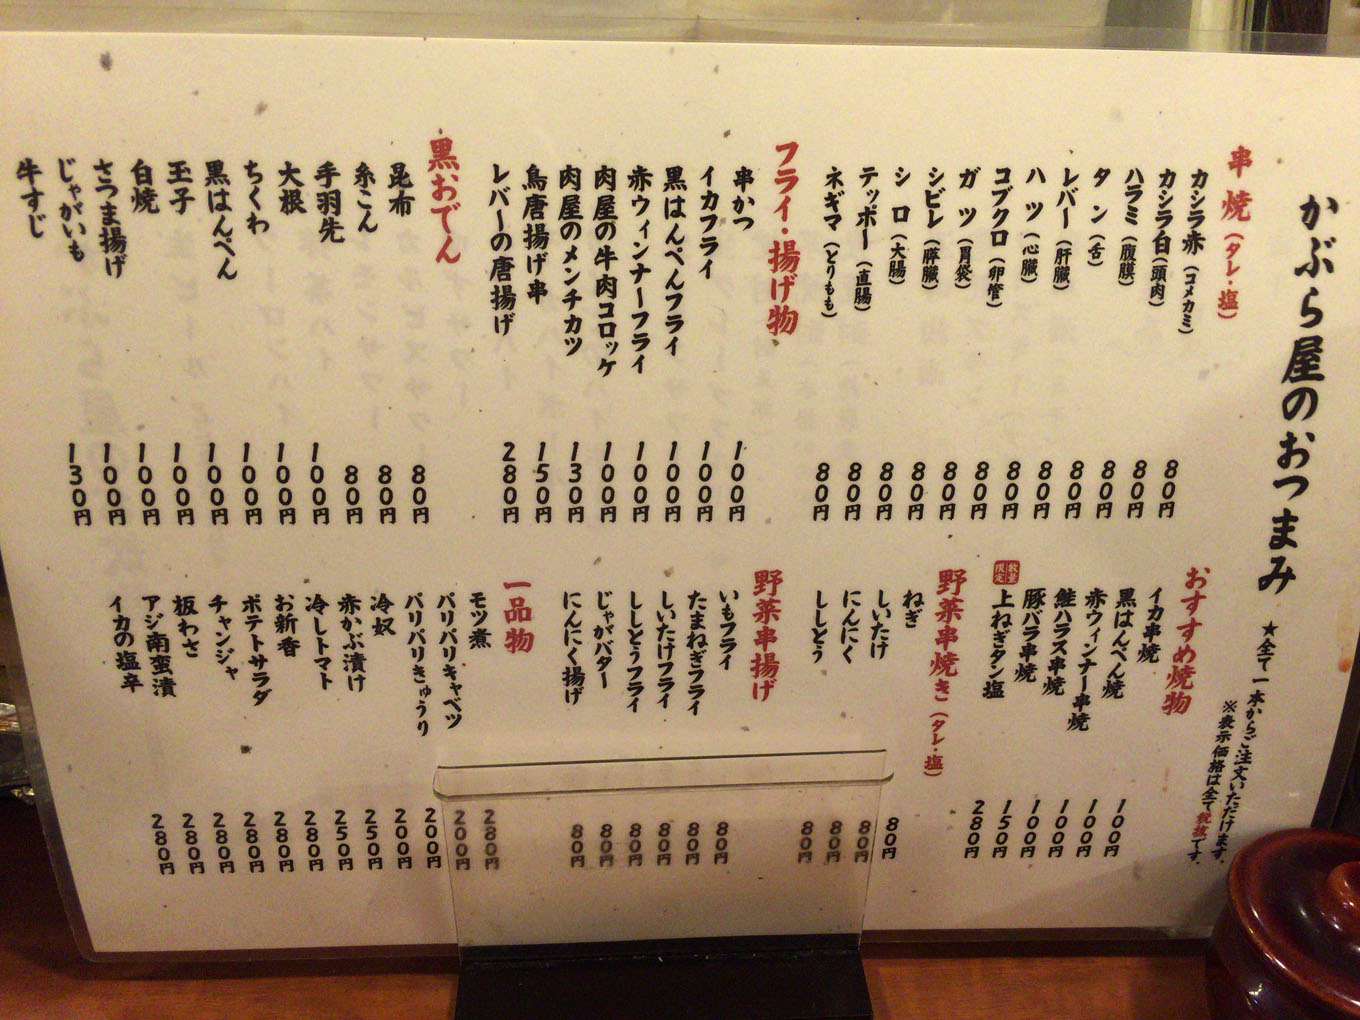 かぶら屋のおつまみ
★全て一本からご注文いただけます。
※表示価格は全て税抜です。
串焼（タレ・塩）
カシラ赤（コメカミ） 80円
カシラ白（頭肉） 80円
ハラミ（腹膜） 80円
タン（舌） 80円
レバー（肝臓） 80円
ハツ（心臓） 80円
コブクロ（卵管） 80円
ガツ（胃袋） 80円
シビレ（膵臓） 80円
シロ（大腸） 80円
テッポー（直腸） 80円
ネギマ（とりもも） 80円
フライ・揚げ物
串かつ 100円
イカフライ 100円
黒はんぺんフライ 100円
赤ウィンナーフライ 100円
肉屋の牛肉コロッケ 100円
肉屋のメンチカツ 130円
鳥唐揚げ串 150円
レバーの唐揚げ 280円
黒おでん
昆布 80円
糸こん 80円
手羽先 80円
大根 100円
ちくわ 100円
黒はんぺん 100円
玉子 100円
白焼 100円
さつま揚げ 100円
じゃがいも 100円
牛すじ 130円
おすすめ焼物
イカ串焼 100円
黒はんぺん焼 100円
赤ウィンナー串焼 100円
鮭ハラス串焼 100円
豚バラ串焼 150円
数量限定 上ねぎタン塩 280円
野菜串焼き（タレ・塩）
ねぎ 80円
しいたけ 80円
にんにく 80円
ししとう 80円
野菜串揚げ
いもフライ 80円
たまねぎフライ 80円
しいたけフライ 80円
ししとうフライ 80円
じゃがバター 80円
にんにく揚げ 80円
一品物
モツ煮 280円
パリパリキャベツ 200円
パリパリきゅうり 200円
冷奴 200円
赤かぶ漬け 250円
冷しトマト 250円
お新香 280円
ポテトサラダ 280円
チャンジャ 280円
板わさ 280円
アジ南蛮漬 280円
イカの塩辛 280円